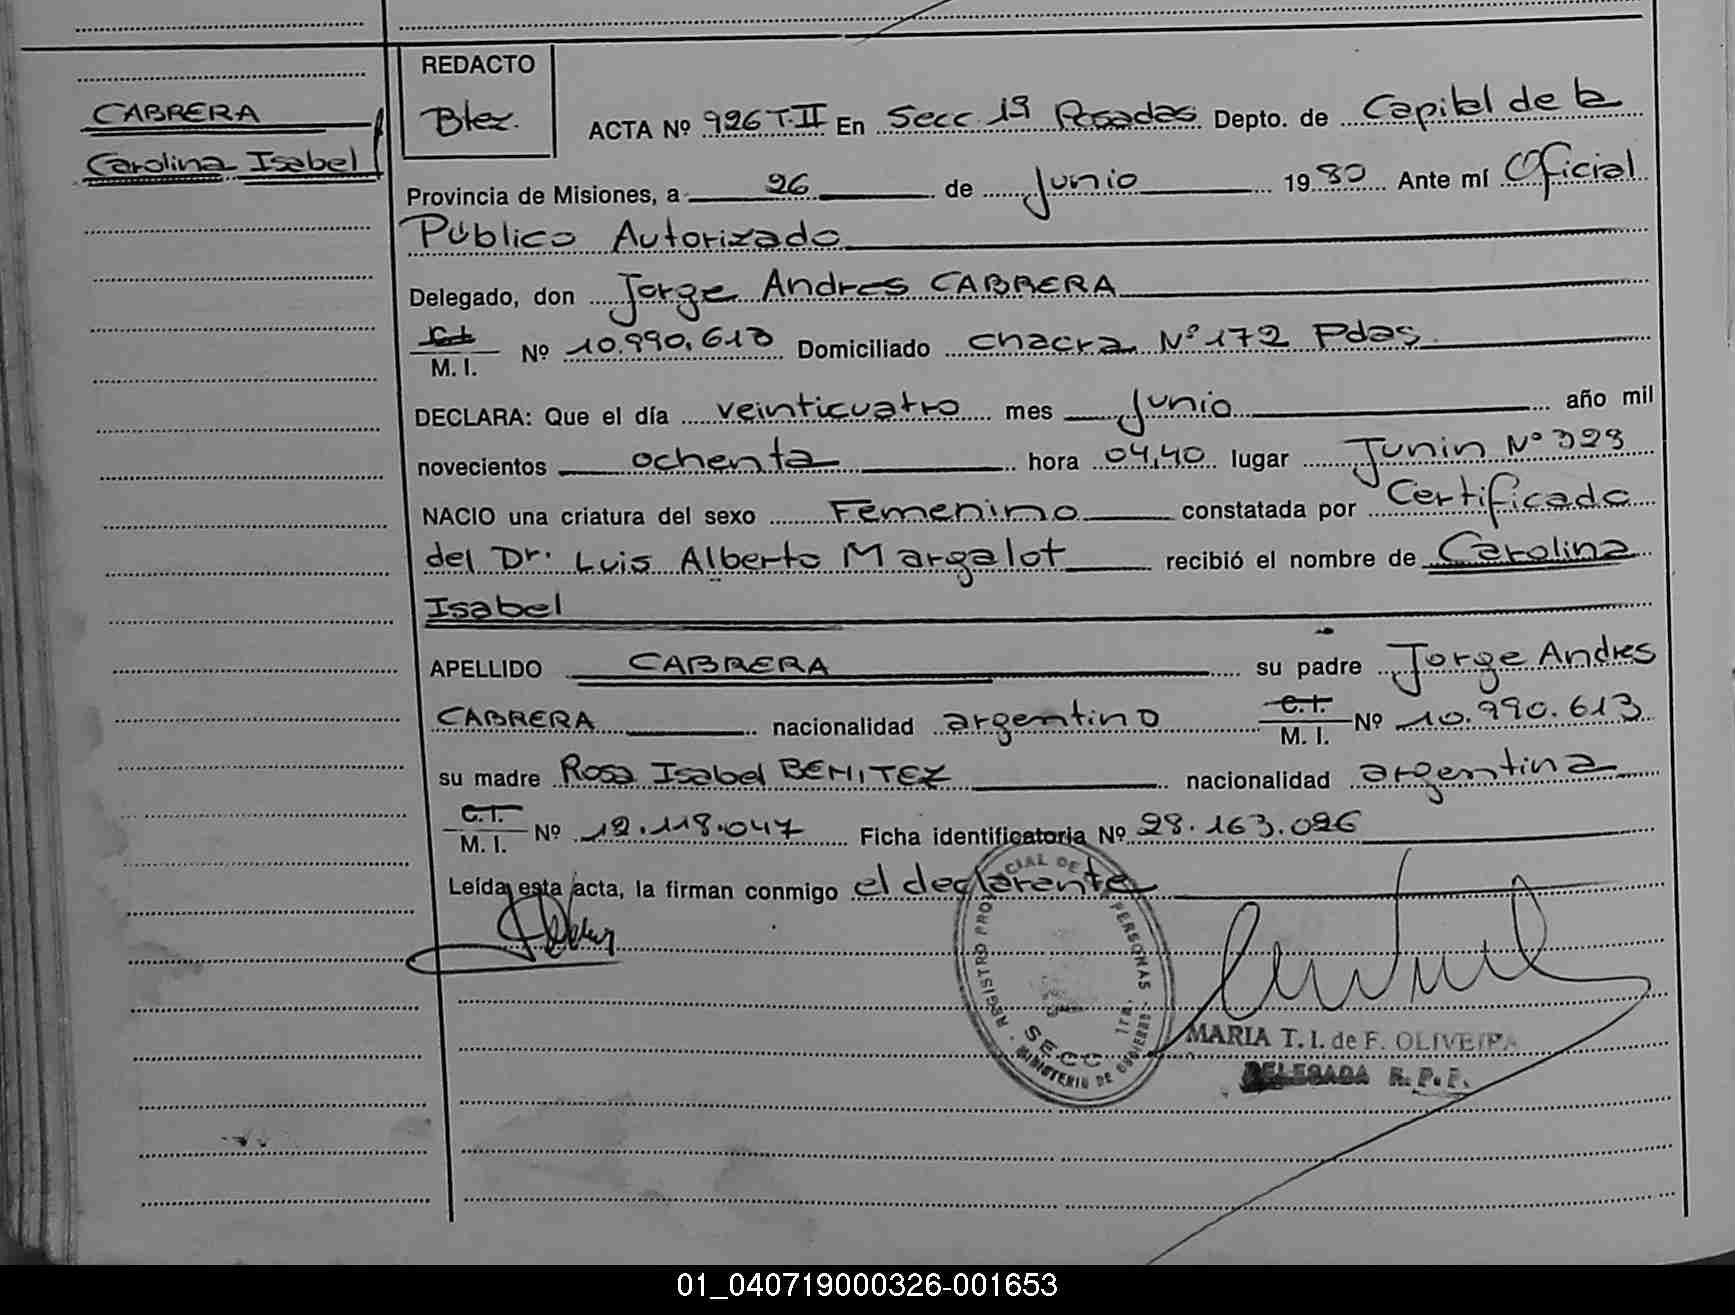 CABRERA
Carolina Isabel
REDACTO
Btez.
ACTA Nº 926 T.II En Secc 1ª Posadas Depto. de Capital de la
Provincia de Misiones, a 26 de Junio 1980 Ante mí Oficial
Público Autorizado
Delegado, don Jorge Andres CABRERA
C.I. M. I. Nº 10.990.613 Domiciliado Chacra Nº 172 Pdas.
DECLARA: Que el día veinticuatro mes Junio año mil
novecientos ochenta hora 04,40 lugar Junin Nº
NACIO una criatura del sexo Femenino constatada por Certificado
del Dr. Luis Alberto Margalot recibió el nombre de Carolina
Isabel
APELLIDO CABRERA su padre Jorge Andres
CABRERA nacionalidad argentino C.I. M. I. Nº 10.990.613
su madre Rosa Isabel BENITEZ nacionalidad argentina
C.I. M. I. Nº 12.118.047 Ficha identificatoria Nº 28.163.026
Leída esta acta, la firman conmigo el declarante
REGISTRO PROVINCIAL DE PERSONAS
SECC 1ra.
MINISTERIO DE GOBIERNO
MARIA T. I. de F. OLIVEIRA
DELEGADA R. P. P.
01_040719000326-001653